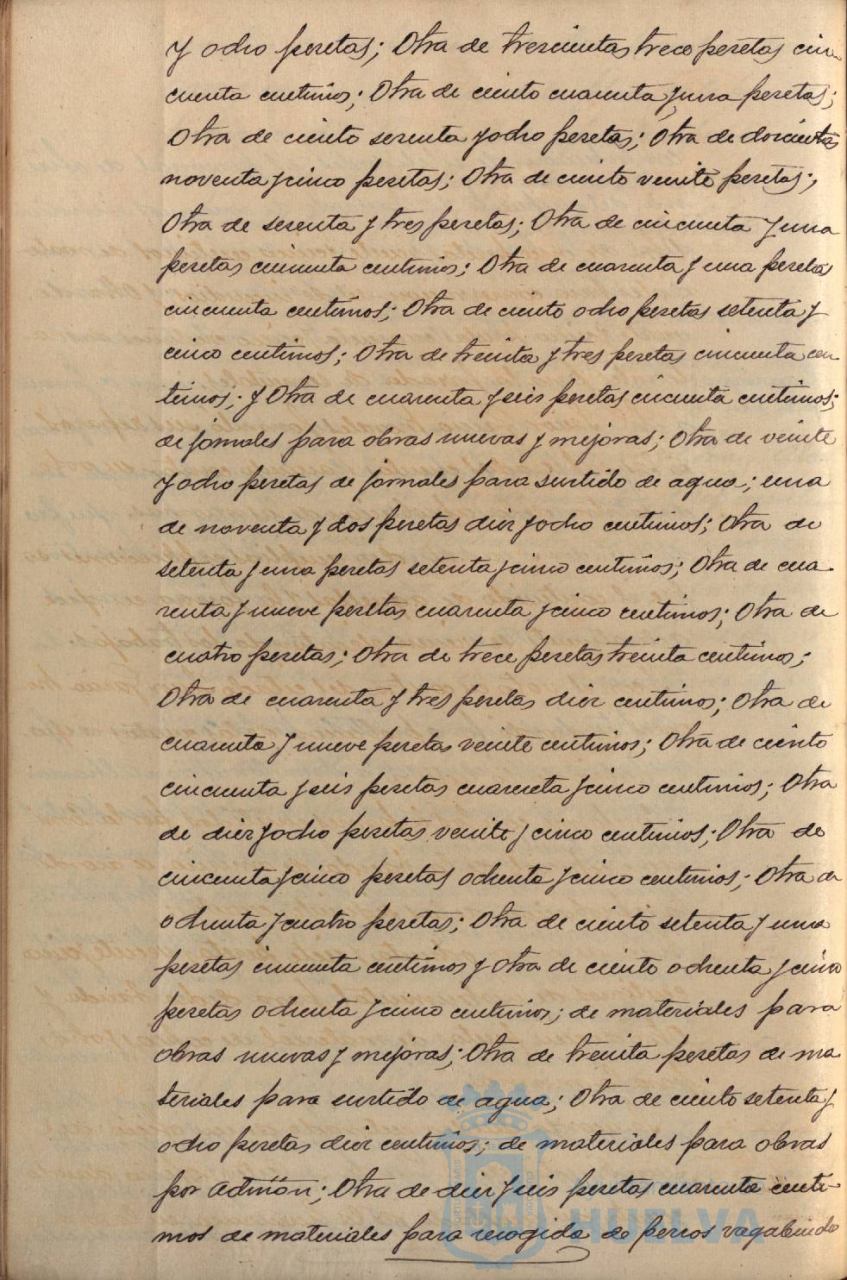 y ocho pesetas; Otra de trescientas trece pesetas cin-
cuenta centimos; Otra de ciento cuarenta y una pesetas;
Otra de ciento sesenta y ocho pesetas; Otra de doscientas
noventa y cinco pesetas; Otra de ciento veinte pesetas;
Otra de sesenta y tres pesetas; Otra de cincuenta y una
pesetas cincuenta centimos; Otra de cuarenta y una pesetas
cincuenta centimos; Otra de ciento ocho pesetas setenta y
cinco centimos; Otra de treinta y tres pesetas cincuenta cen-
timos; y Otra de cuarenta y seis pesetas cincuenta centimos;
de jornales para obras nuevas y mejoras; Otra de veinte
y ocho pesetas de jornales para surtido de agua; una
de noventa y dos pesetas diez y ocho centimos; Otra de
setenta y una pesetas setenta y cinco centimos; Otra de cua-
renta y nueve pesetas cuarenta y cinco centimos; Otra de
cuatro pesetas; Otra de trece pesetas treinta centimos;
Otra de cuarenta y tres pesetas diez centimos; Otra de
cuarenta y nueve pesetas veinte centimos; Otra de ciento
cincuenta y seis pesetas cuarenta y cinco centimos; Otra
de diez y ocho pesetas veinte y cinco centimos; Otra de
cincuenta y cinco pesetas ochenta y cinco centimos; Otra de
ochenta y cuatro pesetas; Otra de ciento setenta y una
pesetas cincuenta centimos y Otra de ciento ochenta y cinco
pesetas ochenta y cinco centimos; de materiales para
obras nuevas y mejoras; Otra de treinta pesetas de ma
teriales para surtido de agua; Otra de ciento setenta y
ocho pesetas diez centimos; de materiales para obras
por admón; Otra de diez y seis pesetas cuarenta centi-
mos de materiales para recogida de perros vagabundo
HUELVA